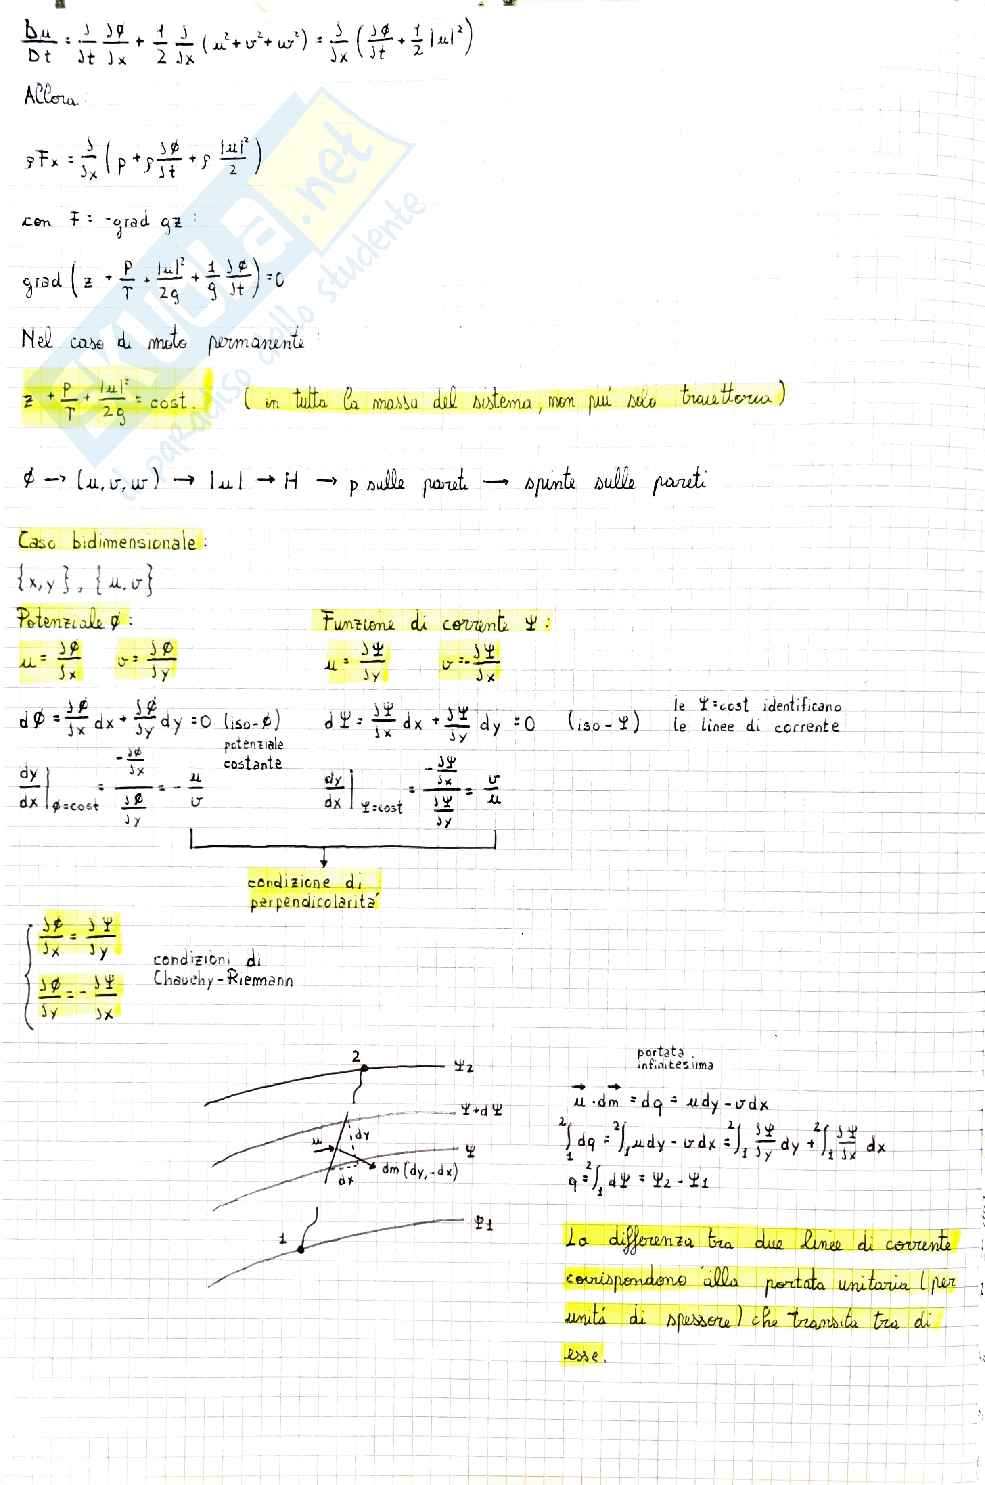 Du/Dt = ∂/∂t ∂ϕ/∂x + 1/2 ∂/∂x (u² + v² + w²) = ∂/∂x (∂ϕ/∂t + 1/2 |u|²)
Allora:
ρFx = ∂/∂x (p + ρ ∂ϕ/∂t + ρ |u|²/2)
con F = -grad gz:
grad (z + p/γ + |u|²/2g + 1/g ∂ϕ/∂t) = 0
Nel caso di moto permanente:
z + p/γ + |u|²/2g = cost. (in tutta la massa del sistema, non più solo traiettoria)
ϕ → (u, v, w) → |u| → H → p sulle pareti → spinte sulle pareti
Caso bidimensionale:
{x,y}, {u,v}
Potenziale ϕ: Funzione di corrente Ψ:
u = ∂ϕ/∂x v = ∂ϕ/∂y u = ∂Ψ/∂y v = -∂Ψ/∂x
dϕ = ∂ϕ/∂x dx + ∂ϕ/∂y dy = 0 (iso-ϕ) potenziale costante
dΨ = ∂Ψ/∂x dx + ∂Ψ/∂y dy = 0 (iso-Ψ)
le Ψ=cost identificano
le linee di corrente
dy/dx |ϕ=cost = (-∂ϕ/∂x)/(∂ϕ/∂y) = - u/v
dy/dx |Ψ=cost = (-∂Ψ/∂x)/(∂Ψ/∂y) = v/u
condizione di
perpendicolarità
∂ϕ/∂x = ∂Ψ/∂y
∂ϕ/∂y = - ∂Ψ/∂x
condizioni di
Chauchy-Riemann
2
Ψ2
Ψ+dΨ
u
dy
Ψ
dx
dm(dy,-dx)
1
Ψ1
portata
infinitesima
u·dm = dq = udy - vdx
∫₁² dq = ∫₁² udy - vdx = ∫₁² ∂Ψ/∂y dy + ∫₁² ∂Ψ/∂x dx
q = ∫₁² dΨ = Ψ2 - Ψ1
La differenza tra due linee di corrente
corrispondono alla portata unitaria (per
unitá di spessore) che transita tra di
esse.
SKUOLA.net
il paradiso dello studente